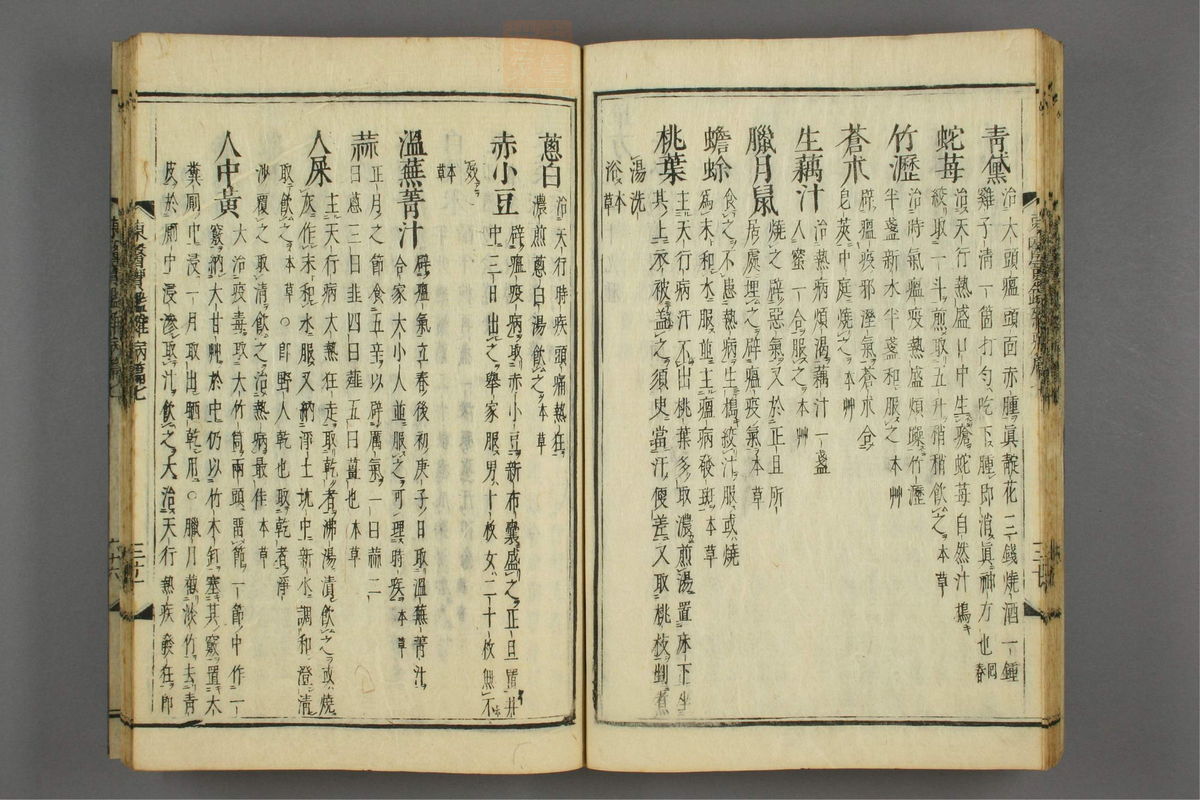 青黛 治大頭瘟頭面赤腫眞靛花三錢燒酒一鍾
雞子淸一箇打勻吃下腫卽消眞神方也 回春
蛇莓 治天行熱盛口中生瘡蛇莓自然汁搗
絞取一斗煎取五升稍稍飮之 本草
竹瀝 治時氣瘟疫熱盛煩躁竹瀝
半盞新水半盞和服之 本艸
蒼朮 辟瘟疫邪濕氣蒼朮合
皂莢中庭燒之 本草
生藕汁 治熱病煩渴藕汁一盞
入蜜一合服之 本艸
臘月鼠 燒之辟惡氣又於正旦所
居處埋之辟瘟疫氣 本草
蟾蜍 食之不患熱病生搗絞汁服或燒
爲末和水服並主瘟病發斑 本草
桃葉 主天行病汗不出桃葉多取濃煎湯置床下坐
其上衣被盖之須臾當汗便差又取桃枝剉煮
湯洗
浴 本草
蔥白 治天行時疾頭痛熱狂
濃煎蔥白湯飮之 本草
赤小豆 辟瘟疫病取赤小豆新布囊盛之正旦置井
中三日出之擧家服男十枚女二十枚無不
效
本草
溫蕪菁汁 辟瘟氣立春後初庚子日取溫蕪菁汁
合家大小人並服之可理時疾 本草
蒜 正月之節食五辛以辟厲氣一曰蒜二
曰蔥三曰韭四曰薤五曰薑也 本草
人屎 主天行病大熱狂走取乾者沸湯漬飮之或燒
灰作末和水服又納淨土坑中新水調和澄淸
取飮之 本草○卽野人乾也取乾者淨
沙覆之取淸飮之治熱病最作 本草
人中黃 大治疫毒取大竹筒兩頭留節一節中作一
竅納大甘艸於中仍以竹木釘塞其竅置大
糞厠中浸一月取出晒乾用○臘月截淡竹去靑
皮於厠中浸滲取汁飮之大治天行熱疾發狂卽
東醫寶鑑雜病篇七